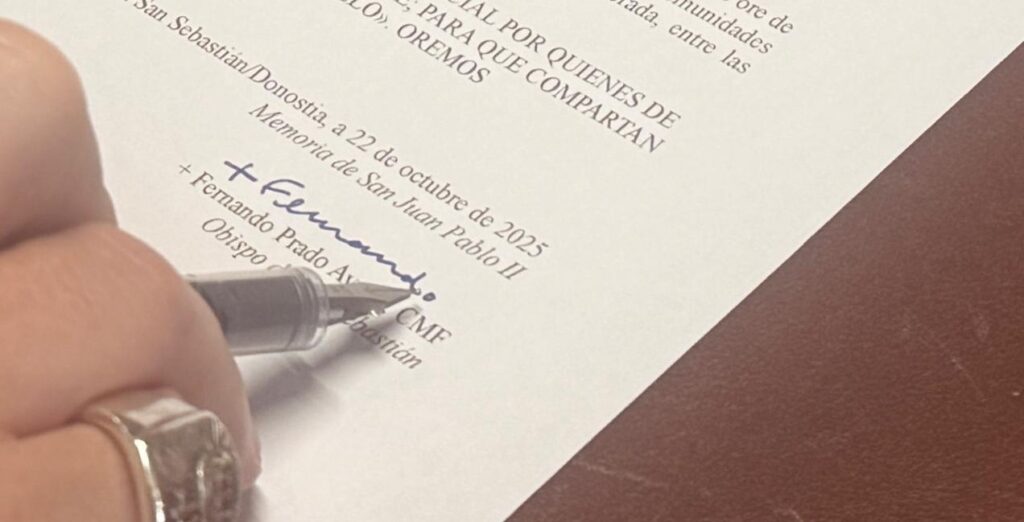 ore de
munidades
rada, entre las
CIAL POR QUIENES DE
PARA QUE COMPARTAN
LO». OREMOS
San Sebastián/Donostia, a 22 de octubre de 2025
Memoria de San Juan Pablo II
+ Fernando
+ Fernando Prado CMF
Obispo bastián